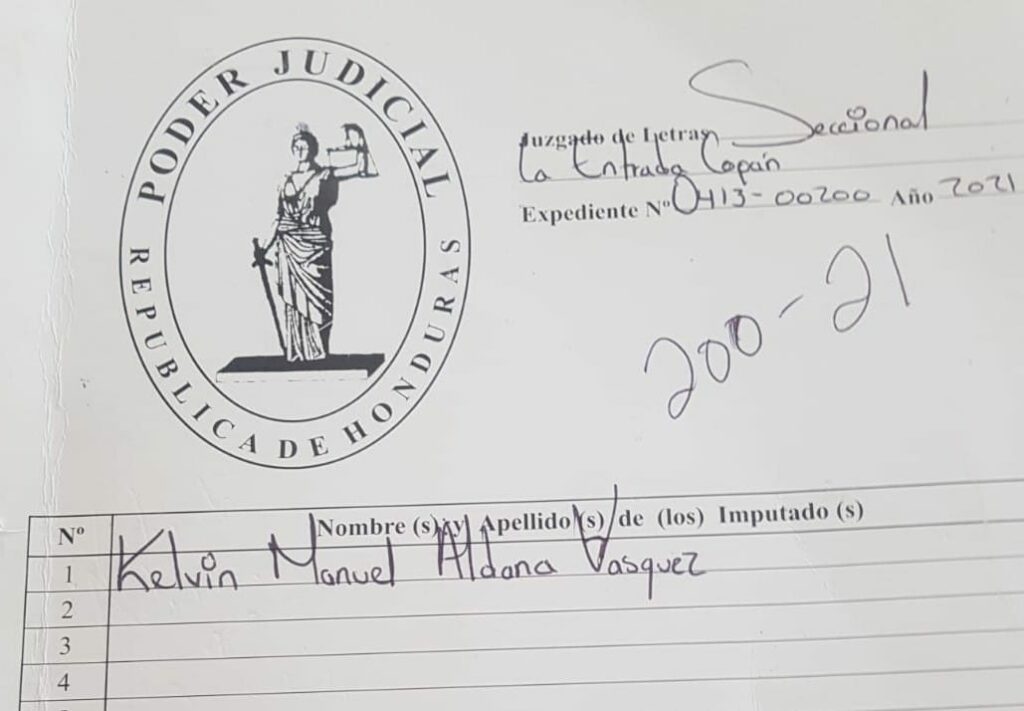 PODER JUDICIAL
REPUBLICA DE HONDURAS
Juzgado de Letras Seccional
La Entrada Copán
Expediente Nº 0413-00200 Año 2021
200-21
Nº Nombre (s) y Apellido (s) de (los) Imputado (s)
1 Kelvin Manuel Aldana Vasquez
2
3
4